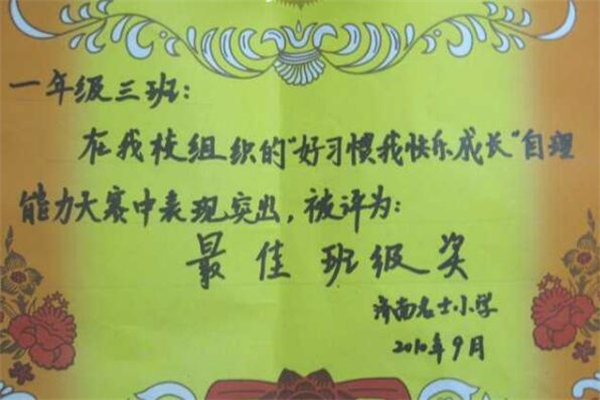 一年级三班：
在我校组织的“好习惯我快乐成长”自理
能力大赛中表现突出，被评为：
最佳班级奖
济南名士小学
2010年9月